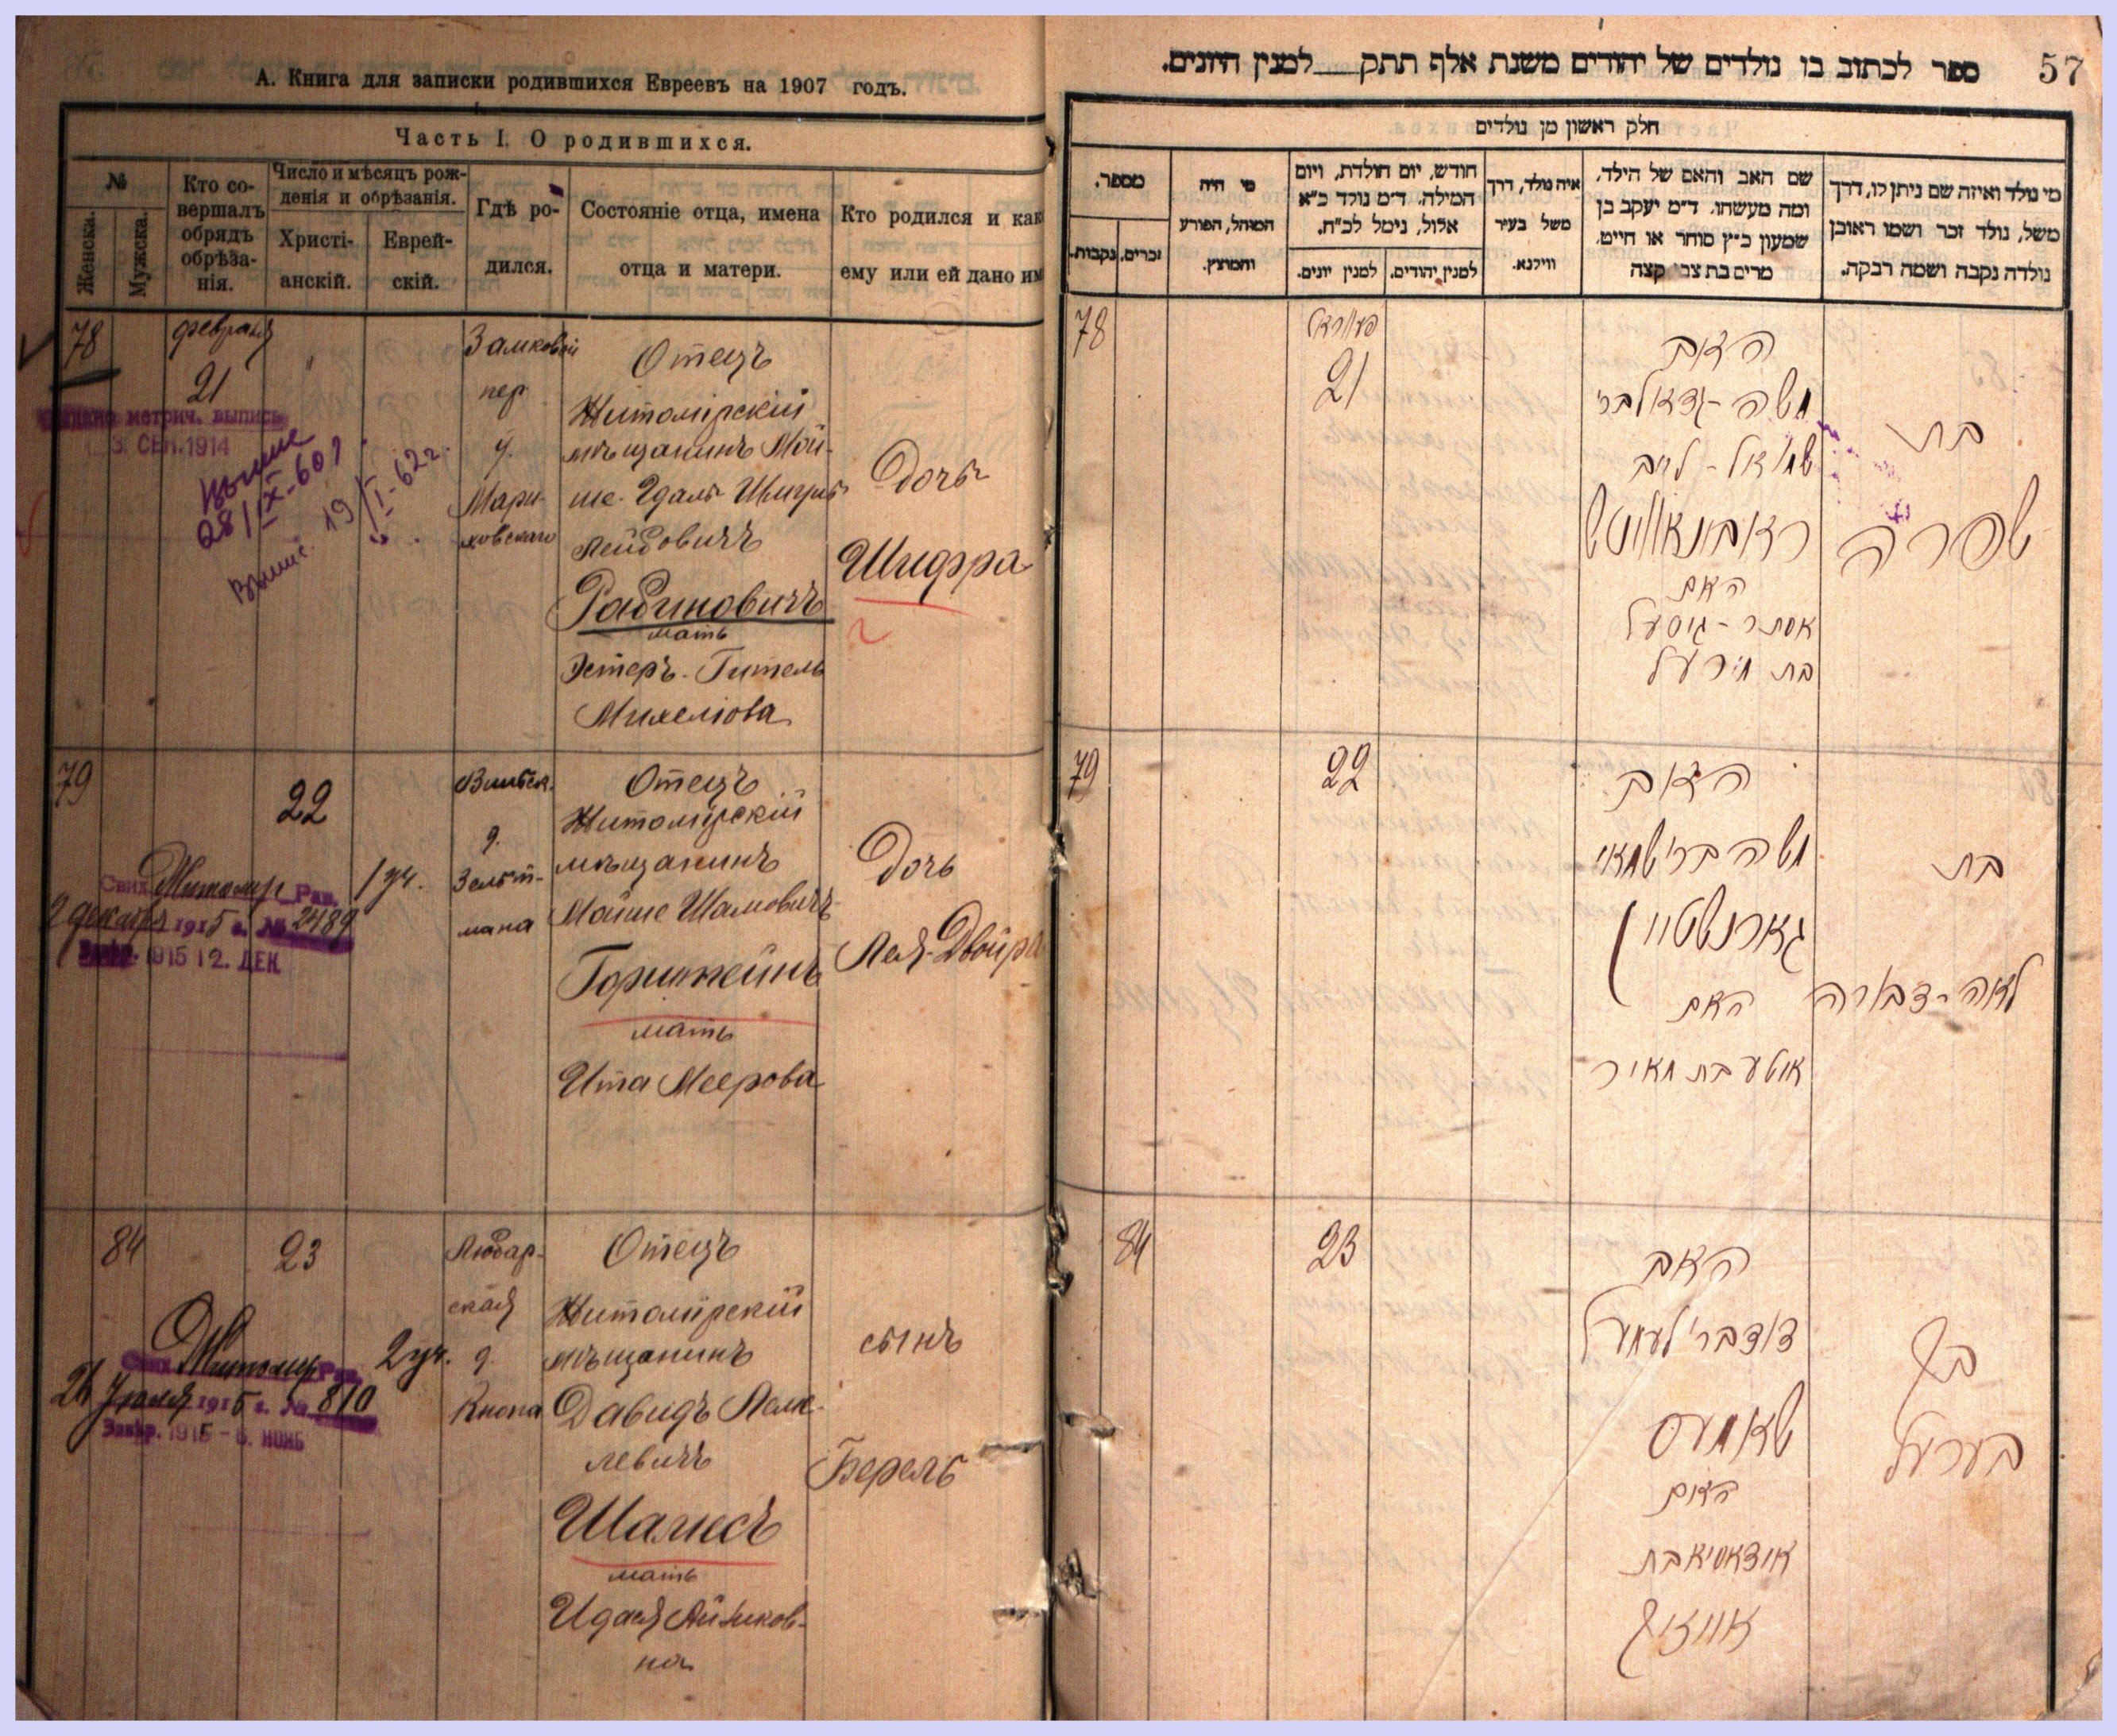 А. Книга для записки родившихся Евреевъ на 1907 годъ.
Часть I. О родившихся.
№
Женска.
Мужска.
Кто со-
вершалъ
обрядъ
обрѣза-
нія.
Число и мѣсяцъ рож-
денія и обрѣзанія.
Христі-
анскій.
Еврей-
скій.
Гдѣ ро-
дился.
Состояніе отца, имена
отца и матери.
Кто родился и как
ему или ей дано им
78
февраля
21
Замковой
пер
д.
Отецъ
Житомірскій
мѣщанинъ Мой-
ше-Гдаль Шмуль
Лейбовичъ
Рабиновичъ
мать
Эстеръ-Гитель
Михелюва
Дочь
Шифра
метрич. выпись
3. СЕН. 1914
28/IX-60г
19/I-62г.
79
22
1 уч.
Вильск.
д.
Зельт-
мана
Отецъ
Житомірскій
мѣщанинъ
Мойше Шамовичъ
Горнштейнъ
мать
Ита Меерова
Дочь
Лея-Двойра
Свид. Житомір Рав.
2 декабря 1915 г. № 2489
1915 12. ДЕК
84
23
2 уч.
Любар-
ская
д.
Кнопа
Отецъ
Житомірскій
мѣщанинъ
Давидъ Лемe-
левичъ
Шамесъ
мать
сынъ
Берель
Свид. Житомір Рав.
1915 г. № 810
Завѣр. 1915 - 6. НОЯБ
57
ספר לכתוב בו נולדים של יהודים משנת אלף תתק— למנין היונים.
חלק ראשון מן נולדים
מי נולד ואיזה שם ניתן לו, דרך
משל, נולד זכר ושמו ראובן
נולדה נקבה ושמה רבקה.
שם האב והאם של הילד,
ומה מעשהו. ד"מ יעקב בן
שמעון כ"ץ סוחר או חייט,
מרים בת צבי קצה
איה נולד, דרך
משל בעיר
ווילנא.
חודש, יום הולדת, ויום
המילה. ד"מ נולד כ"א
אלול, נימל לכ"ח.
למנין יהודים.
למנין יונים.
מי היה
המוהל, הפורע
והמוצץ.
מספר.
זכרים.
נקבות.
78
21
האב
משה-גדאל בר'
שמואל-לייב
ראבינאוויטש
האם
אסתר-גיטעל
בת מיכעל
בת
שפרה
79
22
האב
משה בר' שמאי
גארנשטיין
האם
איטע בת מאיר
בת
לאה-דבורה
84
23
האב
דוד בר' לעמעל
שאמעס
האם
בן
בערעל